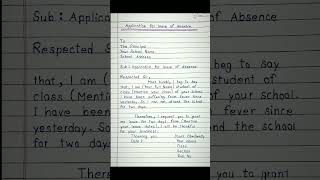 Application for leave of absence
To
The Principal
Your School Name
School Address
Sub: Application for leave of Absence
Respected Sir,
Most humbly I beg to say
that, I am (Your full Name) student of
class (Mention your class) of your school.
I have been suffering from fever since
yesterday. So I can not attend the school
for two days.
Therefore, I request you to grant
me leave for two days from (Mention
your leave dates). I will be thankful
for your kindness.
Thanking you Yours Obediently
Date: Your Name
Class
Section
Roll No
Sub : Applica
Respected S
that, I am (
class (Mentio
I have been
yesterday. S
for two days.
of Absence
beg to say
student of
of your school.
fever since
the school